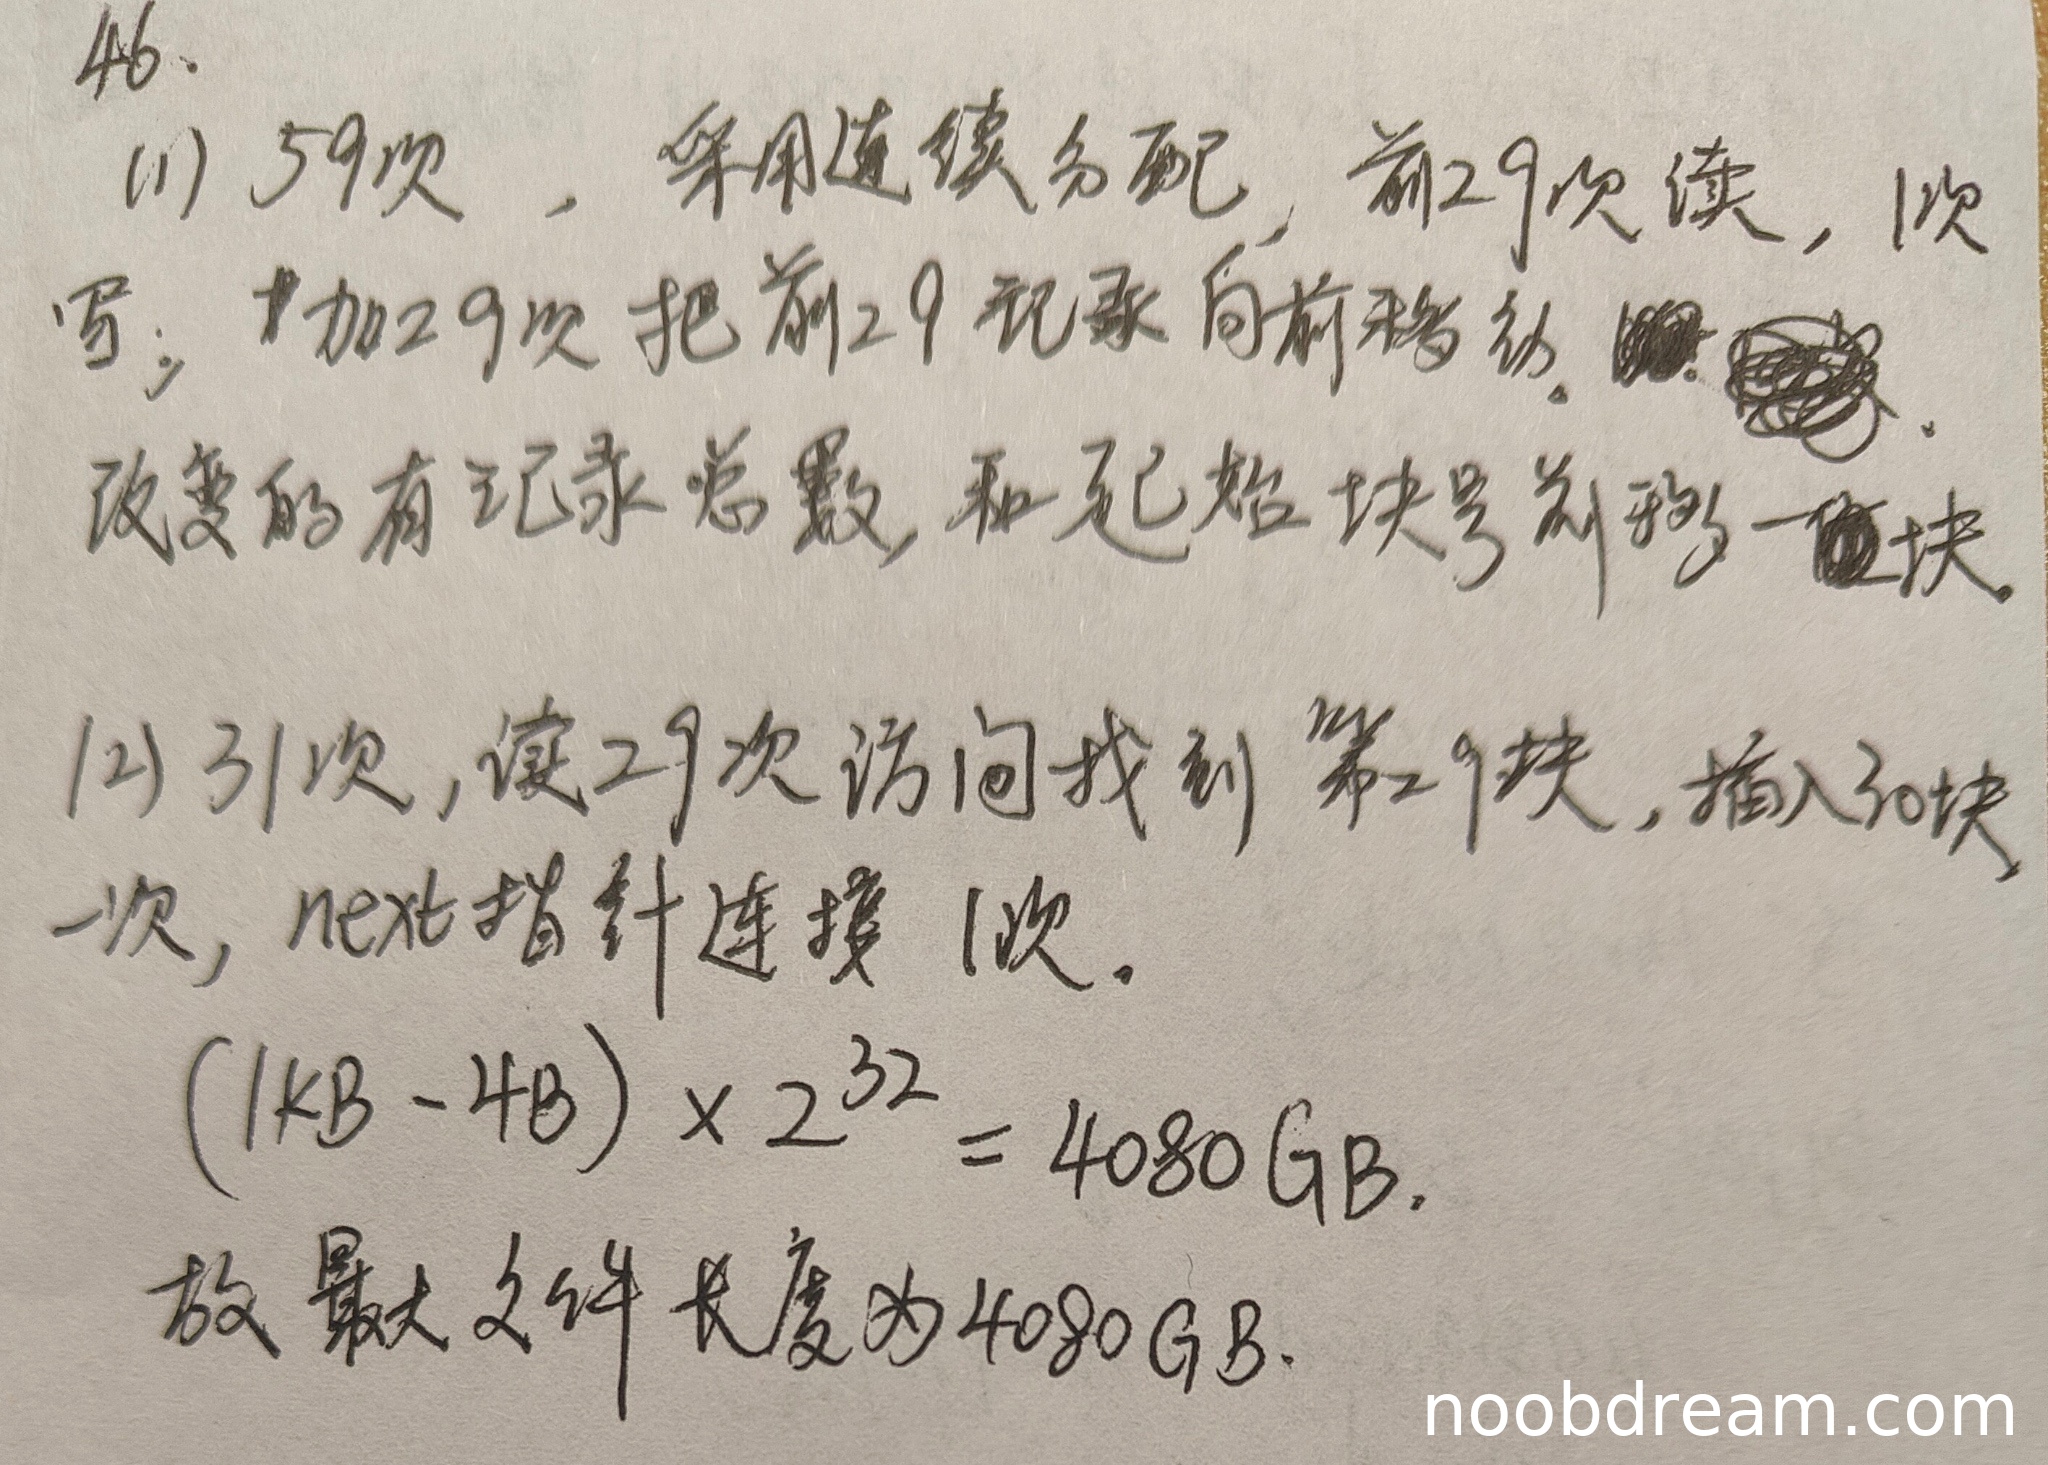 46.
(1) 59次,采用连续分配,前29次读,1次
写;加29次把前29记录向前移动.
改变的有记录总数,和起始块号前移一块.
(2) 31次,读29次访问找到第29块,插入30块
一次,next指针连接1次.
(1KB-4B)×2^32=4080GB.
故最大文件长度为4080GB.
noobdream.com